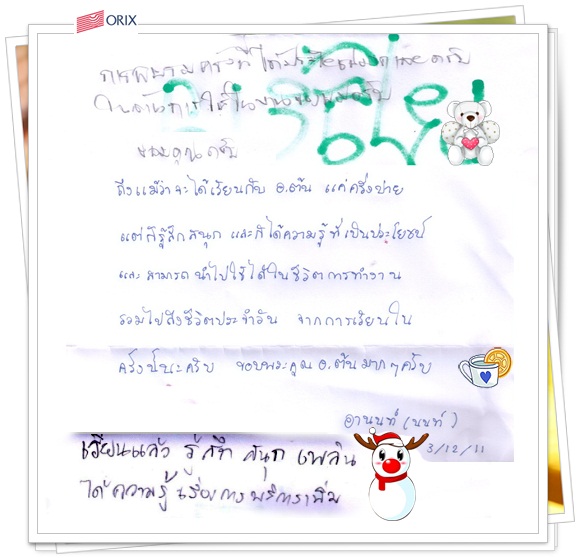 ORIX
การอบรมครั้งที่ได้
ขอบคุณครับ
ถึงแม้ว่าจะได้เรียนกับ อ.ต้น แค่ครึ่งบ่าย
แต่ก็รู้สึกสนุก และก็ได้ความรู้ที่เป็นประโยชน์
และ สามารถนำไปใช้ได้ในชีวิตการทำงาน
รวมไปถึงชีวิตประจำวัน จากการเรียนใน
ครั้งนี้นะครับ ขอบพระคุณ อ.ต้นมากๆครับ
อานนท์ (นนท์)
3/12/11
เรียนแล้ว รู้สึก สนุก เพลิน
ได้ความรู้เรื่องการบริการเพิ่ม